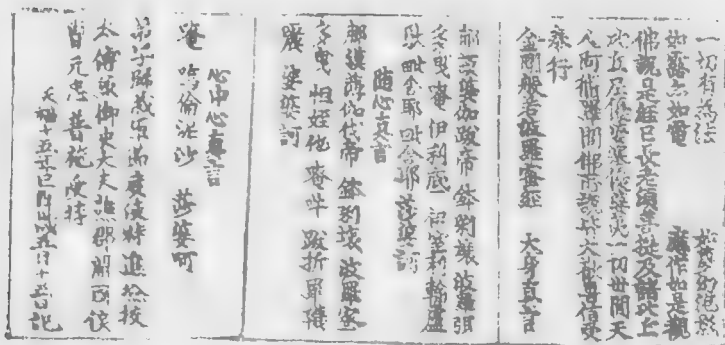 一切有為法 如夢幻泡影
如露亦如電 應作如是觀
佛說是經已長老須菩提及諸比丘
比丘尼優婆塞優婆夷一切世間天
人阿修羅聞佛所說皆大歡喜信受
奉行
金剛般若波羅蜜經 大身真言
那謨婆伽跋帝 鉢剌壤 波羅弭
多曳 唵 伊利底 伊室利 輸盧
馱 毗舍耶 毗舍耶 莎婆訶
隨心真言
那謨薄伽伐帝 鉢剌壤 波羅蜜
多曳 怛姪他 唵吽 跋折羅
娑婆訶
心中心真言
唵 嗚倫泥沙 莎婆訶
弟子歸義軍節度使特進檢校
太傅兼御史大夫譙郡開國侯
曹元忠普施受持
天福十五年己酉歲五月十五日記